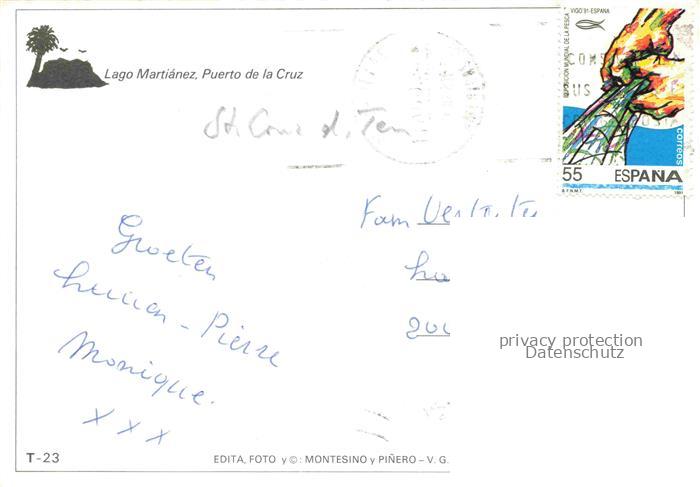 Lago Martiánez, Puerto de la Cruz
St. Cruz d. Ten
EXPOSICION MUNDIAL DE LA PESCA
VIGO 91-ESPAÑA
correos
55 ESPAÑA
F.N.M.T. 1991
Groeten
Lucien - Pierre
Monique.
x x x
Fam
200
privacy protection
Datenschutz
T-23
EDITA, FOTO y ©: MONTESINO y PIÑERO - V. G.